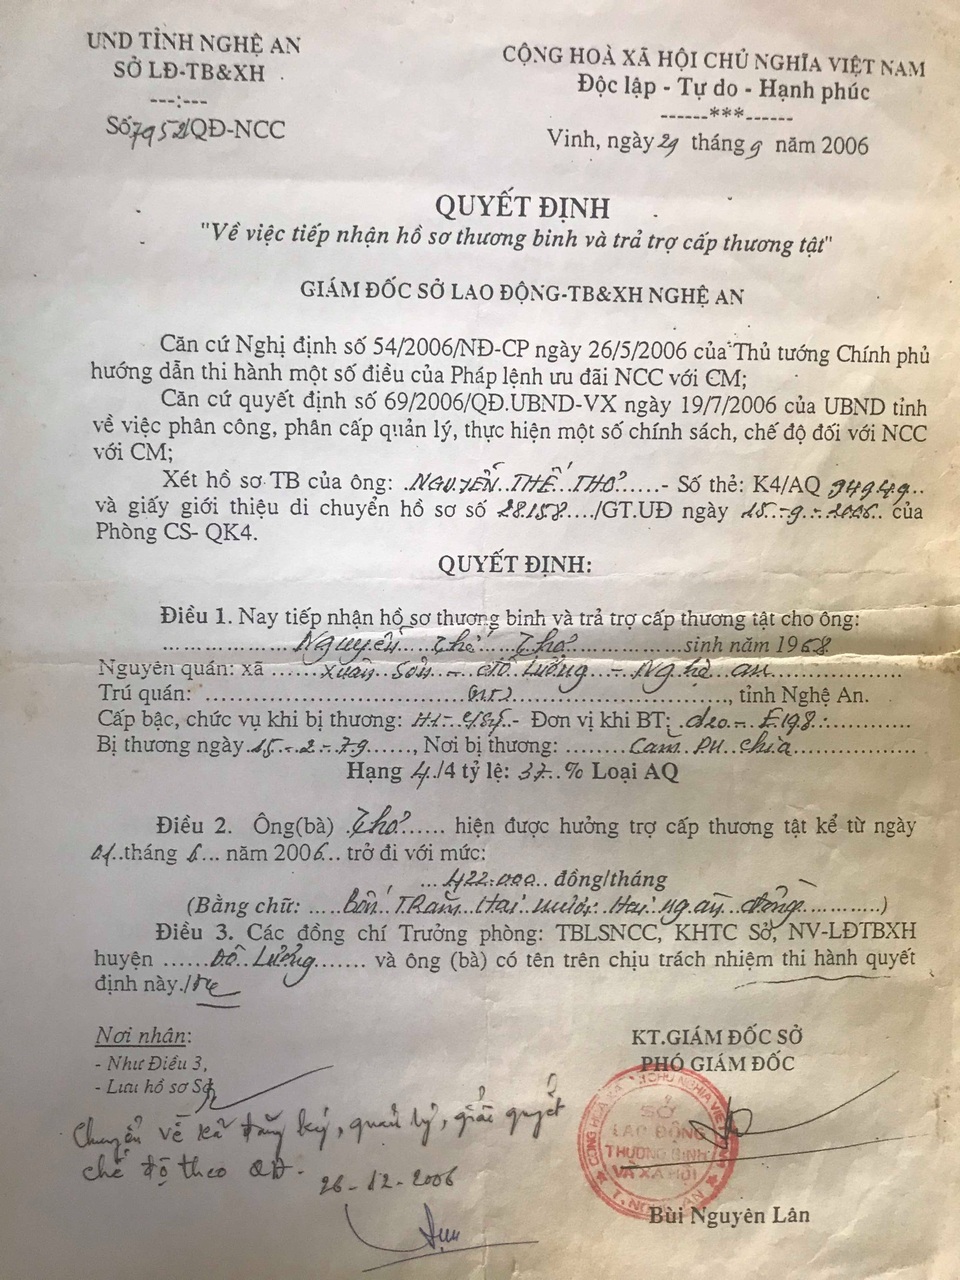 UND TỈNH NGHỆ AN
SỞ LĐ-TB&XH
---:---
Số 7952/QĐ-NCC
CỘNG HOÀ XÃ HỘI CHỦ NGHĨA VIỆT NAM
Độc lập - Tự do - Hạnh phúc
------***------
Vinh, ngày 29 tháng 9 năm 2006
QUYẾT ĐỊNH
"Về việc tiếp nhận hồ sơ thương binh và trả trợ cấp thương tật"
GIÁM ĐỐC SỞ LAO ĐỘNG-TB&XH NGHỆ AN
Căn cứ Nghị định số 54/2006/NĐ-CP ngày 26/5/2006 của Thủ tướng Chính phủ
hướng dẫn thi hành một số điều của Pháp lệnh ưu đãi NCC với CM;
Căn cứ quyết định số 69/2006/QĐ.UBND-VX ngày 19/7/2006 của UBND tỉnh
về việc phân công, phân cấp quản lý, thực hiện một số chính sách, chế độ đối với NCC
với CM;
Xét hồ sơ TB của ông: NGUYỄN THẾ THƠ - Số thẻ: K4/AQ 94949
và giấy giới thiệu di chuyển hồ sơ số 28158/GT.UĐ ngày 15-9-2006 của
Phòng CS- QK4.
QUYẾT ĐỊNH:
Điều 1. Nay tiếp nhận hồ sơ thương binh và trả trợ cấp thương tật cho ông:
Nguyễn Thế Thơ sinh năm 1958
Nguyên quán: xã Xuân Sơn - Đô Lương - Nghệ an
Trú quán: , tỉnh Nghệ An.
Cấp bậc, chức vụ khi bị thương: H1- - Đơn vị khi BT: - E198
Bị thương ngày 15-2-79, Nơi bị thương: Căm Pu chia
Hạng 4/4 tỷ lệ: 37% Loại AQ
Điều 2. Ông(bà) Thơ hiện được hưởng trợ cấp thương tật kể từ ngày
01 tháng 6 năm 2006 trở đi với mức:
422.000 đồng/tháng
(Bằng chữ: Bốn Trăm Hai mươi Hai ngàn đồng)
Điều 3. Các đồng chí Trưởng phòng: TBLSNCC, KHTC Sở, NV-LĐTBXH
huyện Đô Lương và ông (bà) có tên trên chịu trách nhiệm thi hành quyết
định này./
Nơi nhận:
- Như Điều 3,
- Lưu hồ sơ Sở
KT.GIÁM ĐỐC SỞ
PHÓ GIÁM ĐỐC
CỘNG HOÀ XÃ HỘI CHỦ NGHĨA VIỆT NAM
SỞ
LAO ĐỘNG
THƯƠNG BINH
VÀ XÃ HỘI
T. NGHỆ AN
Bùi Nguyên Lân
Chuyển về xã đăng ký, quản lý, giải quyết
chế độ theo QĐ.
26-12-2006